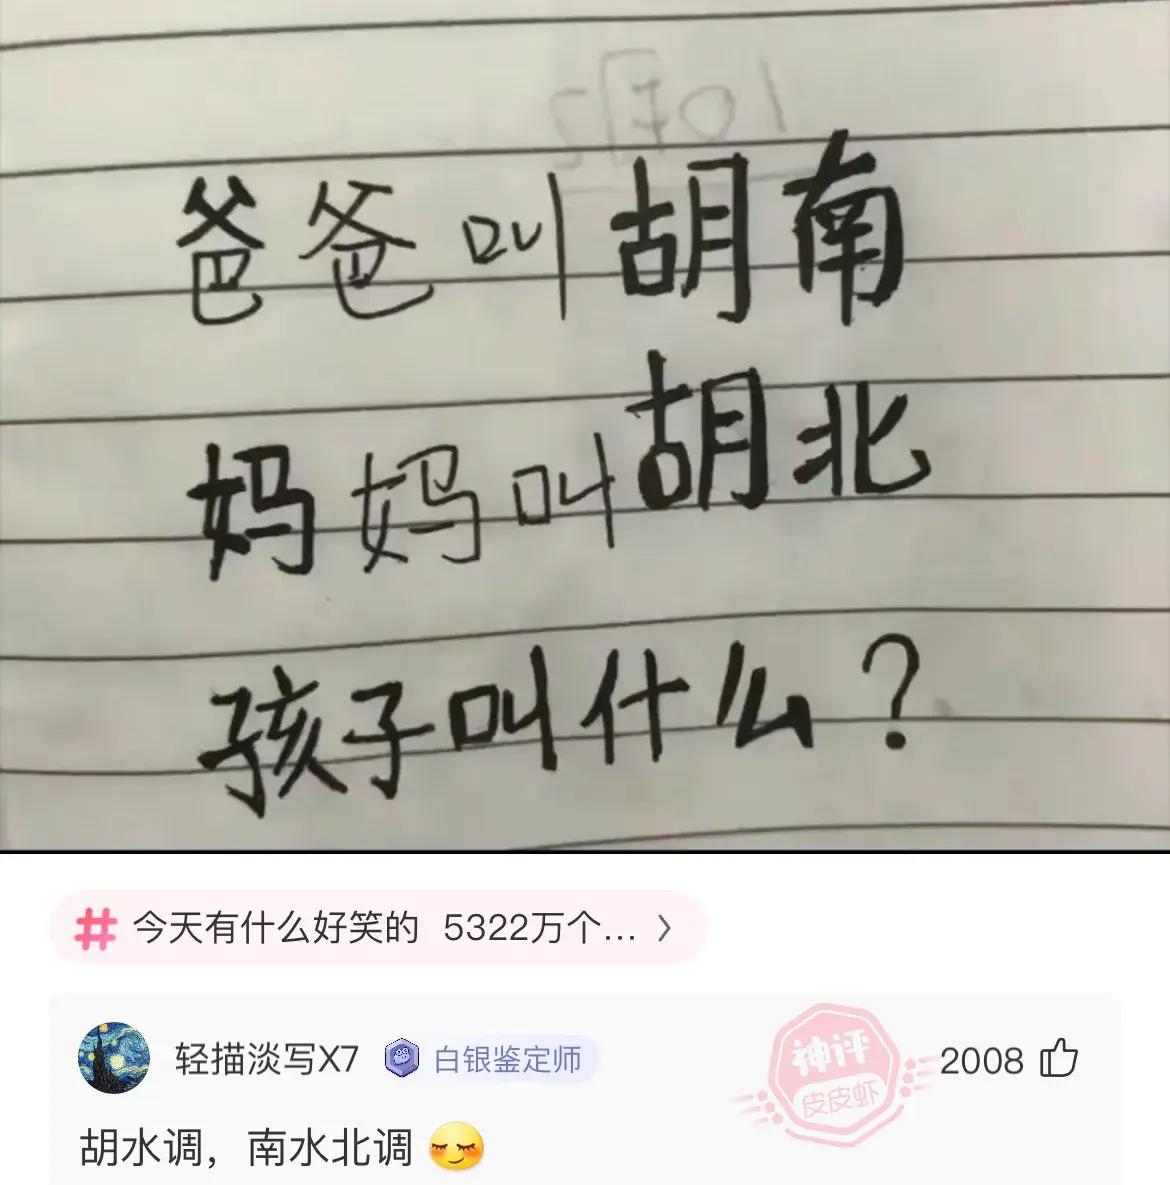 爸爸叫胡南
妈妈叫胡北
孩子叫什么?
# 今天有什么好笑的 5322万个... >
轻描淡写X7 白银鉴定师 神评 皮皮虾 2008
胡水调，南水北调